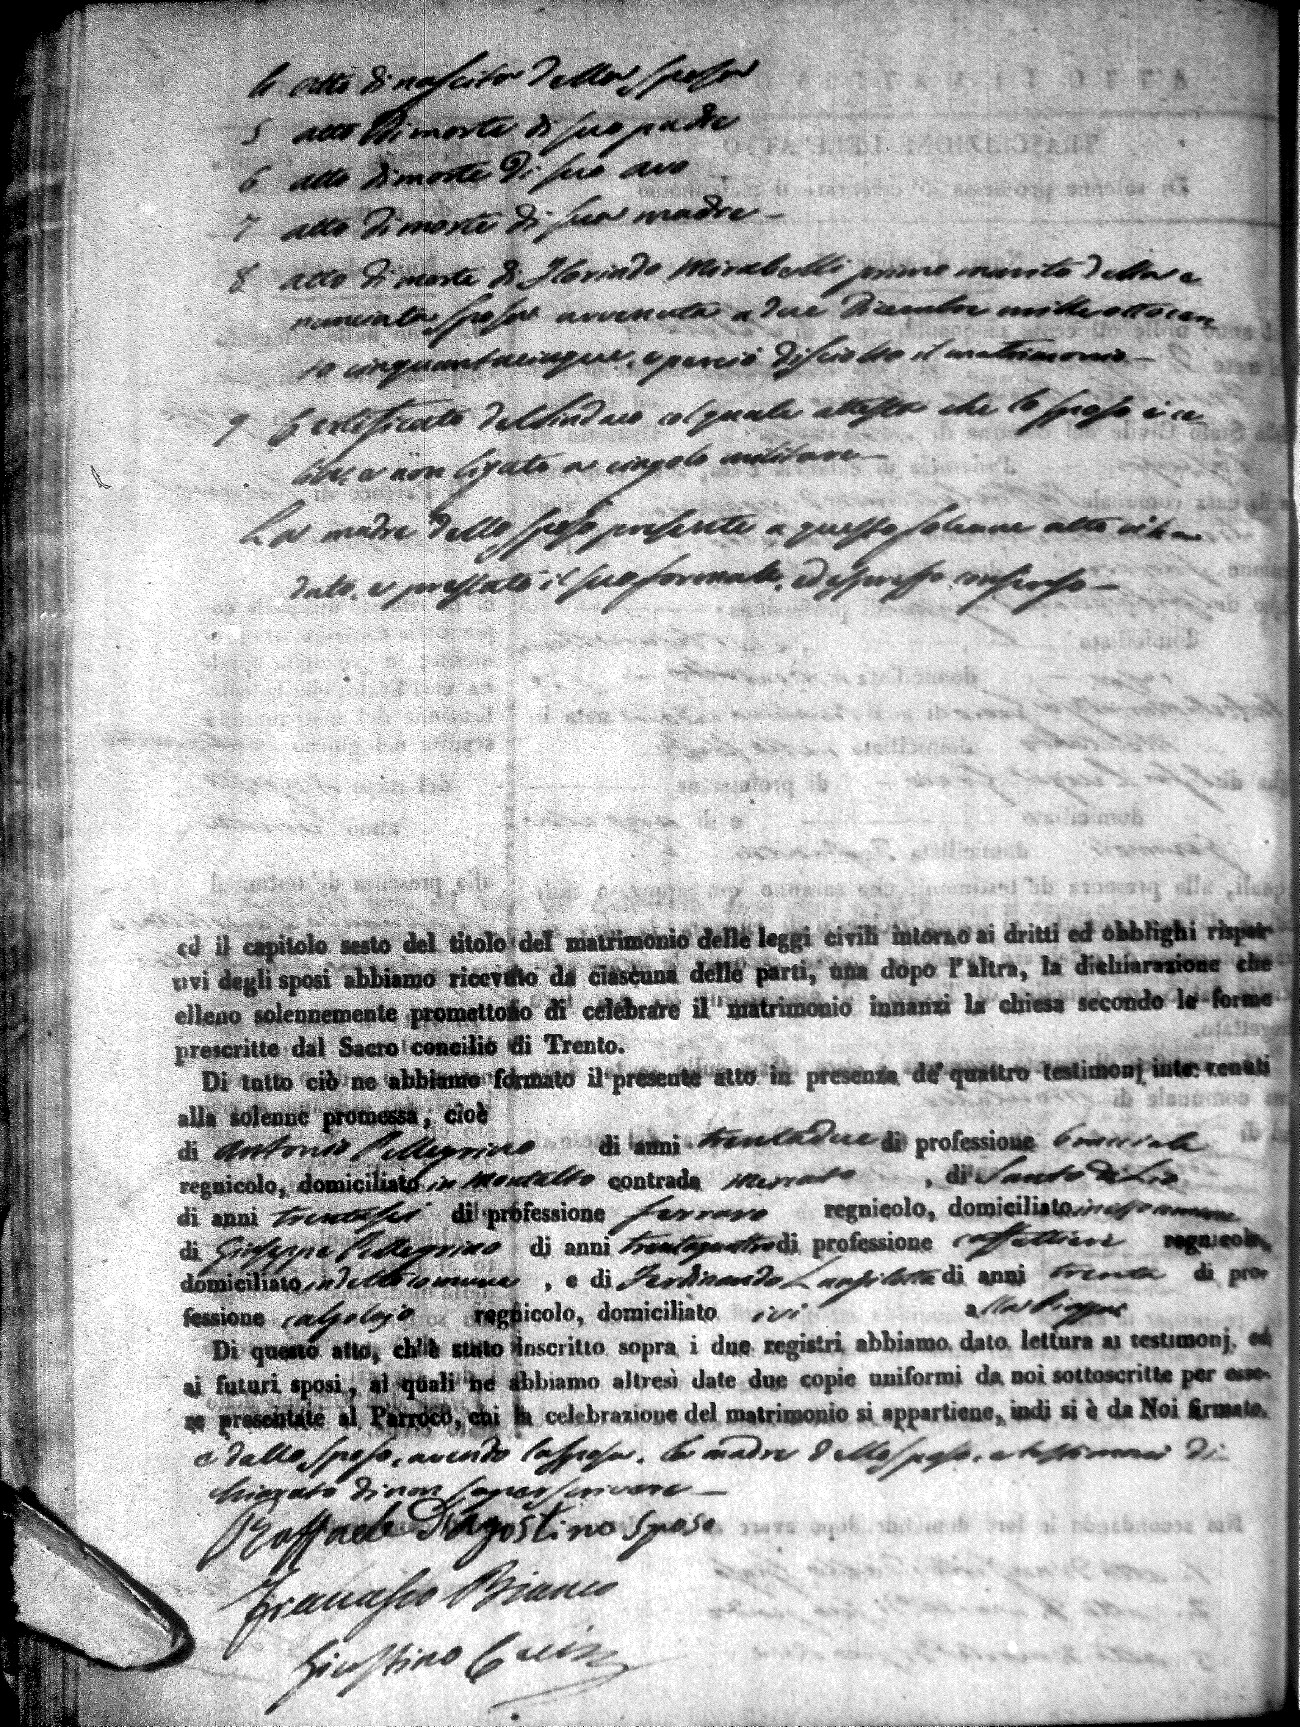 4 atto di nascita della sposa
5 atto di morte di suo padre
6 atto di morte di suo avo
7 atto di morte di sua madre —
8 atto di morte di Florindo Mirabelli primo marito della e
nunciata sposa avvenuta a due Dicembre mille ottocen
to cinquantacinque, e perciò disciolto il matrimonio —
9 Certificato del Sindaco col quale attesta che lo sposo è ce
libe, e non ligato a cingolo militare —
La madre dello sposo presente a questo solenne atto
dato, e prestato il suo formale, ed espresso consenso —
ed il capitolo sesto del titolo del matrimonio delle leggi civili intorno ai dritti ed obblighi rispet-
tivi degli sposi abbiamo ricevuto da ciascuna delle parti, una dopo l'altra, la dichiarazione che
elleno solennemente promettono di celebrare il matrimonio innanzi la chiesa secondo le forme
prescritte dal Sacro concilio di Trento.
Di tutto ciò ne abbiamo formato il presente atto in presenza de' quattro testimonj intervenuti
alla solenne promessa, cioè
di Antonio Pellegrino di anni trentadue di professione bracciale
regnicolo, domiciliato in Montalto contrada mercato, di Santo di Lio
di anni trentasei di professione ferraro regnicolo, domiciliato in esso comune
di Giuseppe Pellegrino di anni trentaquattro di professione caffettiere regnicolo,
domiciliato in detto comune, e di Ferdinando di anni trenta di pro-
fessione calzolajo regnicolo, domiciliato ivi alla Piazza
Di questo atto, ch'è stato inscritto sopra i due registri abbiamo dato lettura ai testimonj, ed
ai futuri sposi, ai quali ne abbiamo altresì date due copie uniformi da noi sottoscritte per esse-
re presentate al Parroco, cui la celebrazione del matrimonio si appartiene, indi si è da Noi firmato.
e dallo sposo, avendo la sposa, la madre dello sposo, e testimoni di
chiarato di non saper scrivere —
Raffaele D'Agostino sposo
Francesco Bianco
Giustino